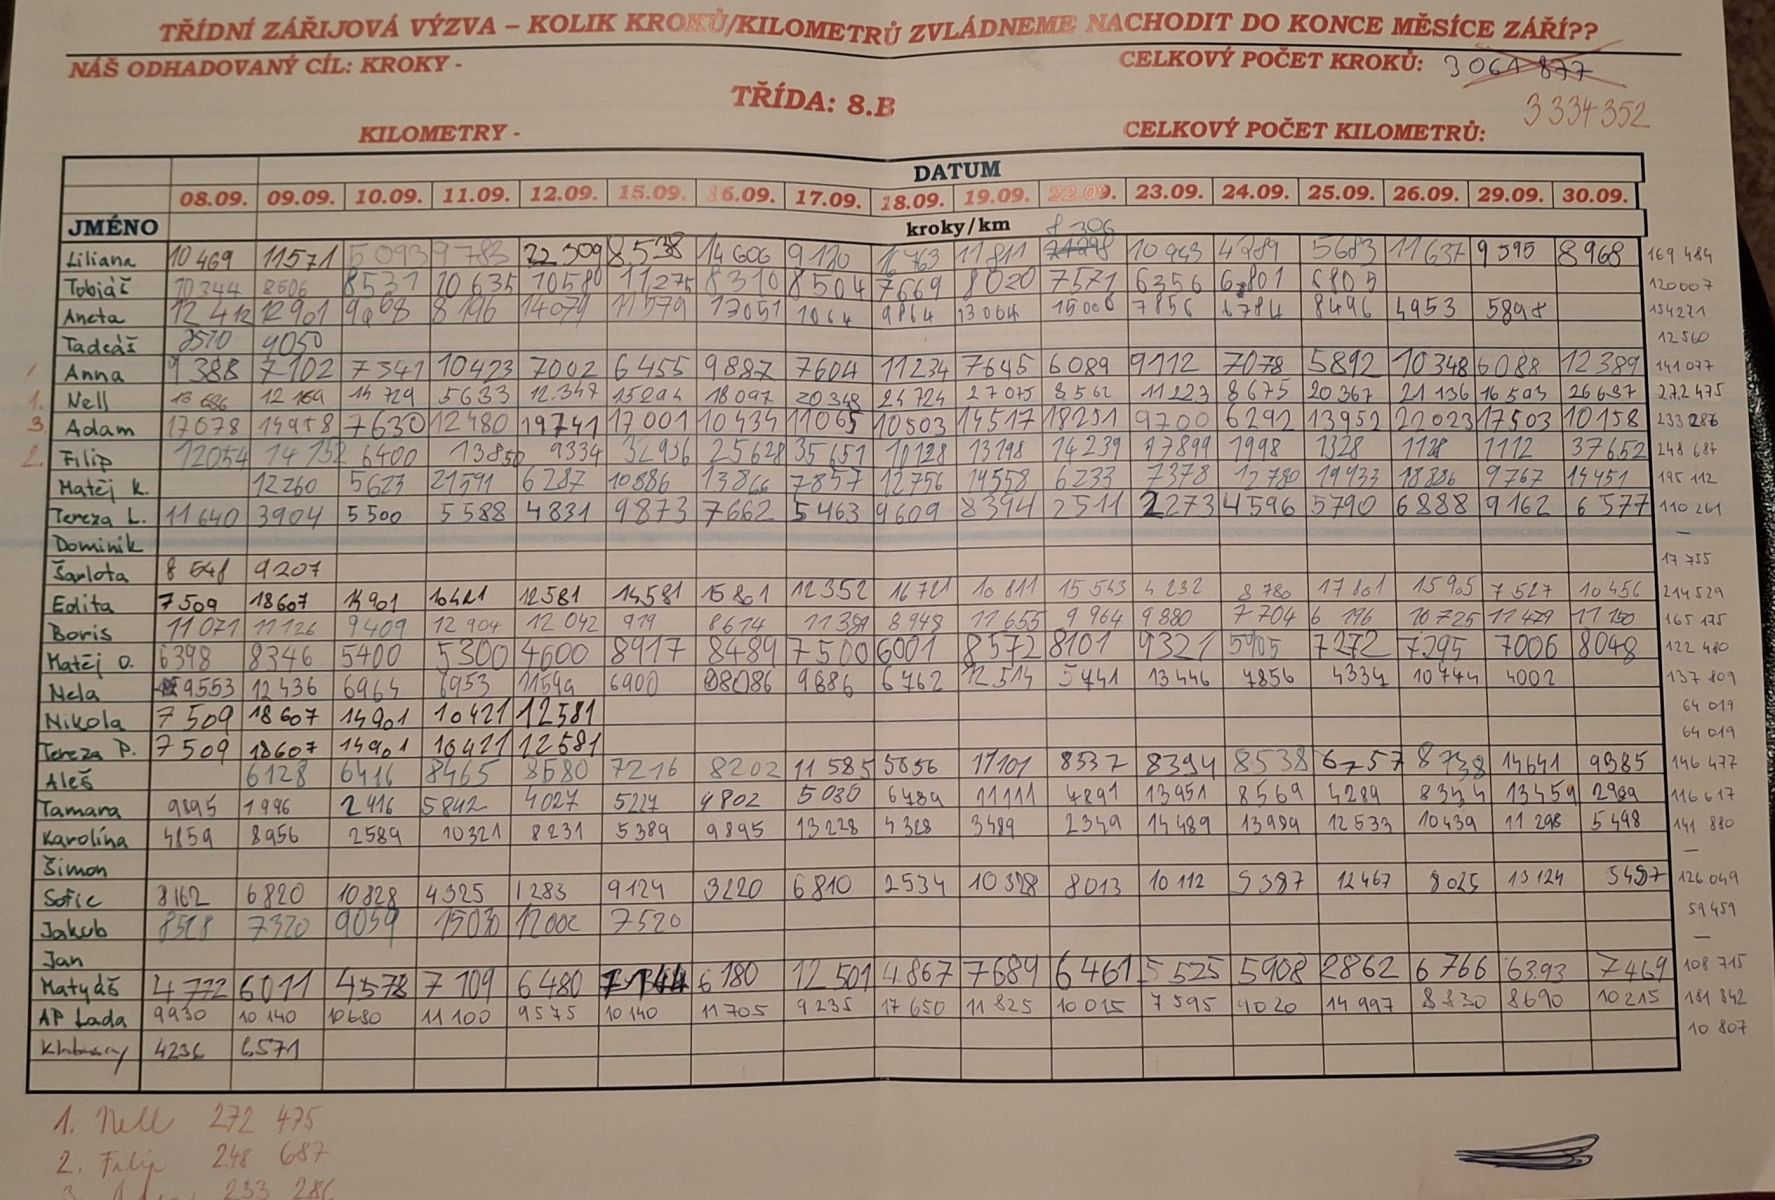 TŘÍDNÍ ZÁŘIJOVÁ VÝZVA – KOLIK KROKŮ/KILOMETRŮ ZVLÁDNEME NACHODIT DO KONCE MĚSÍCE ZÁŘÍ??
NÁŠ ODHADOVANÝ CÍL: KROKY - CELKOVÝ POČET KROKŮ: 3 061 877
TŘÍDA: 8.B 3 334 352
KILOMETRY - CELKOVÝ POČET KILOMETRŮ:
DATUM
08.09. 09.09. 10.09. 11.09. 12.09. 15.09. 16.09. 17.09. 18.09. 19.09. 22.09. 23.09. 24.09. 25.09. 26.09. 29.09. 30.09.
JMÉNO kroky/km 8 306
Liliana 10 469 11571 5093 9783 22 309 8 538 14 606 9120 11 811 10 943 4289 5683 11 637 9 595 8 968 169 484
Tobiáš 10344 8606 8531 10 635 10580 11 275 8310 8504 7669 8020 7571 6356 6801 6805 120007
Aneta 12 412 12 901 8 196 14079 11579 13051 9864 13064 15006 7856 6784 8496 4953 5898 154271
Tadeáš 9050 12 560
Anna 9 388 7102 7341 10423 7002 6 455 9887 7604 11234 7645 6089 9112 7078 5892 10 348 6088 12 389 141 077
1. Nell 13 686 12 169 14 729 5633 12.347 15294 18 097 20 348 24 724 27 075 8 562 11 223 8 675 20 367 21 136 16 503 26 637 272 475
3. Adam 17078 14958 7630 12480 19741 17 001 10 434 11065 10 503 14517 18251 9700 6292 13952 22023 17503 10158 233 286
2. Filip 12054 14 152 6400 13850 9334 32 936 25628 35651 10128 13198 14 239 17899 1998 1328 1128 1112 37652 248 687
Matěj K. 12260 5623 21591 6 287 10886 13866 7857 12756 14558 6233 7378 12 780 19 933 18386 9767 14451 195 112
Tereza L. 11 640 3904 5 500 5 588 4 831 9 873 7 662 5 463 9 609 8 394 2 511 2273 4 596 5790 6 888 9 162 6 577 110 261
Dominik –
Šarlota 8 548 9 207 17 755
Edita 7 509 18607 14901 10421 12 581 14581 15 801 12 352 16 721 10 811 15 543 4 232 8 780 17 801 15 905 7 527 10 456 214 529
Boris 11 071 11 126 9409 12 904 12 042 919 8614 11 359 8 948 11 655 9 964 9 880 7 704 6 196 10 725 11 479 11 150 165 175
Matěj O. 6398 8346 5400 5300 4600 8917 8489 7500 6001 8572 8101 9321 5905 7272 7295 7006 8048 122 480
Nela 9553 12 436 6964 6953 11594 6900 08086 9886 6762 12 514 5441 13 446 7856 4334 10 744 4002 137 809
Nikola 7 509 18 607 14901 10421 12581 64 019
Tereza P. 7 509 18607 14901 10421 12581 64 019
Aleš 6128 6416 8465 8580 7216 8202 11 585 5856 11101 8537 8394 8538 6757 8738 14641 9385 146 477
Tamara 9895 1996 2 416 5842 4027 5227 4802 5 030 6489 11111 4891 13951 8569 4289 13459 2989 116 617
Karolína 4859 8956 2589 10321 8231 5389 9895 13 228 4 328 3489 2349 14 489 13989 12 533 10439 11 298 5 498 141 880
Šimon –
Sofie 8162 6820 10 828 4325 1283 9124 3220 6 810 2534 10 328 8013 10 112 5387 12 467 8 025 13 124 5487 126 049
Jakub 8528 7320 9059 15030 12002 7520 59 459
Jan –
Matyáš 4 772 6011 4578 7 109 6 480 7144 6 180 12 501 4.867 7689 6 461 5 525 5908 2862 6 766 6393 7469 108 715
AP Lada 9930 10 140 10680 11 100 9575 10 140 11 705 9 235 17 650 11 825 10 015 7 595 9020 14 997 8 830 8690 10 215 181 342
4236 6571 10 807
1. Nell 272 475
2. Filip 248 687
3. Adam 233 286